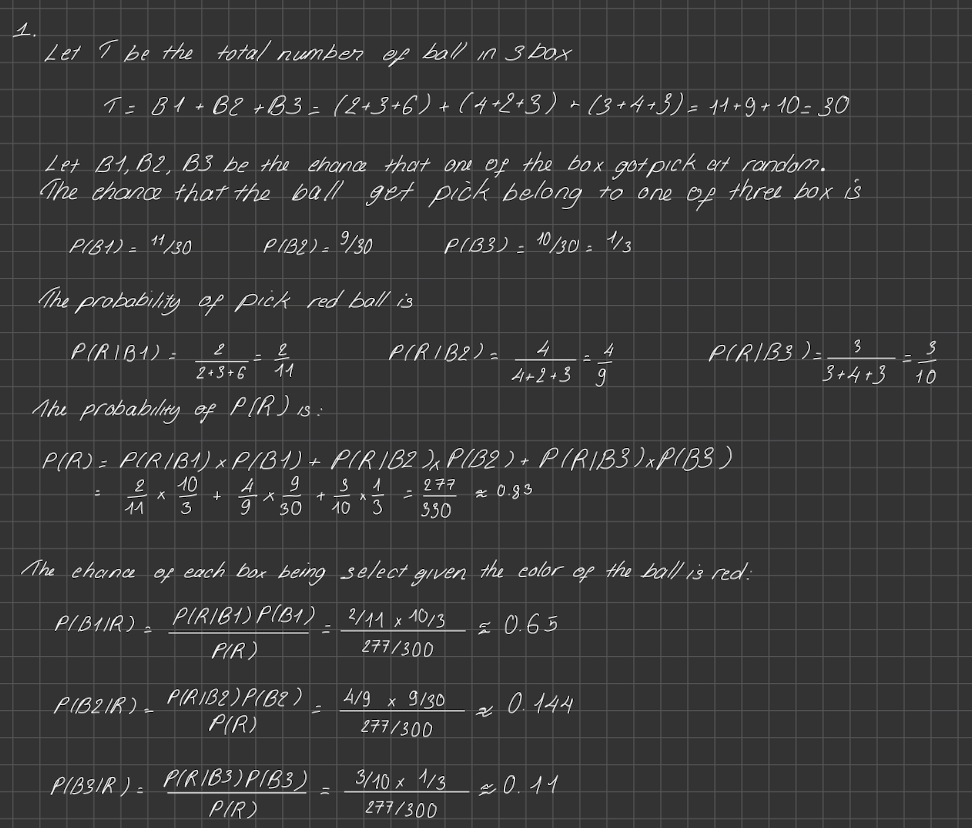 1.
Let T be the total number of ball in 3 box
T = B1 + B2 + B3 = (2+3+6) + (4+2+3) + (3+4+3) = 11+9+10 = 30
Let B1, B2, B3 be the chance that one of the box got pick at random.
The chance that the ball get pick belong to one of three box is
P(B1) = 11/30 P(B2) = 9/30 P(B3) = 10/30 = 1/3
The probability of pick red ball is
P(R|B1) = 2/(2+3+6) = 2/11 P(R|B2) = 4/(4+2+3) = 4/9 P(R|B3) = 3/(3+4+3) = 3/10
The probability of P(R) is:
P(R) = P(R|B1) × P(B1) + P(R|B2) × P(B2) + P(R|B3) × P(B3)
= 2/11 × 10/3 + 4/9 × 9/30 + 3/10 × 1/3 = 277/330 ≈ 0.83
The chance of each box being select given the color of the ball is red:
P(B1|R) = P(R|B1)P(B1)/P(R) = (2/11 × 10/3)/(277/300) ≈ 0.65
P(B2|R) = P(R|B2)P(B2)/P(R) = (4/9 × 9/30)/(277/300) ≈ 0.144
P(B3|R) = P(R|B3)P(B3)/P(R) = (3/10 × 1/3)/(277/300) ≈ 0.11